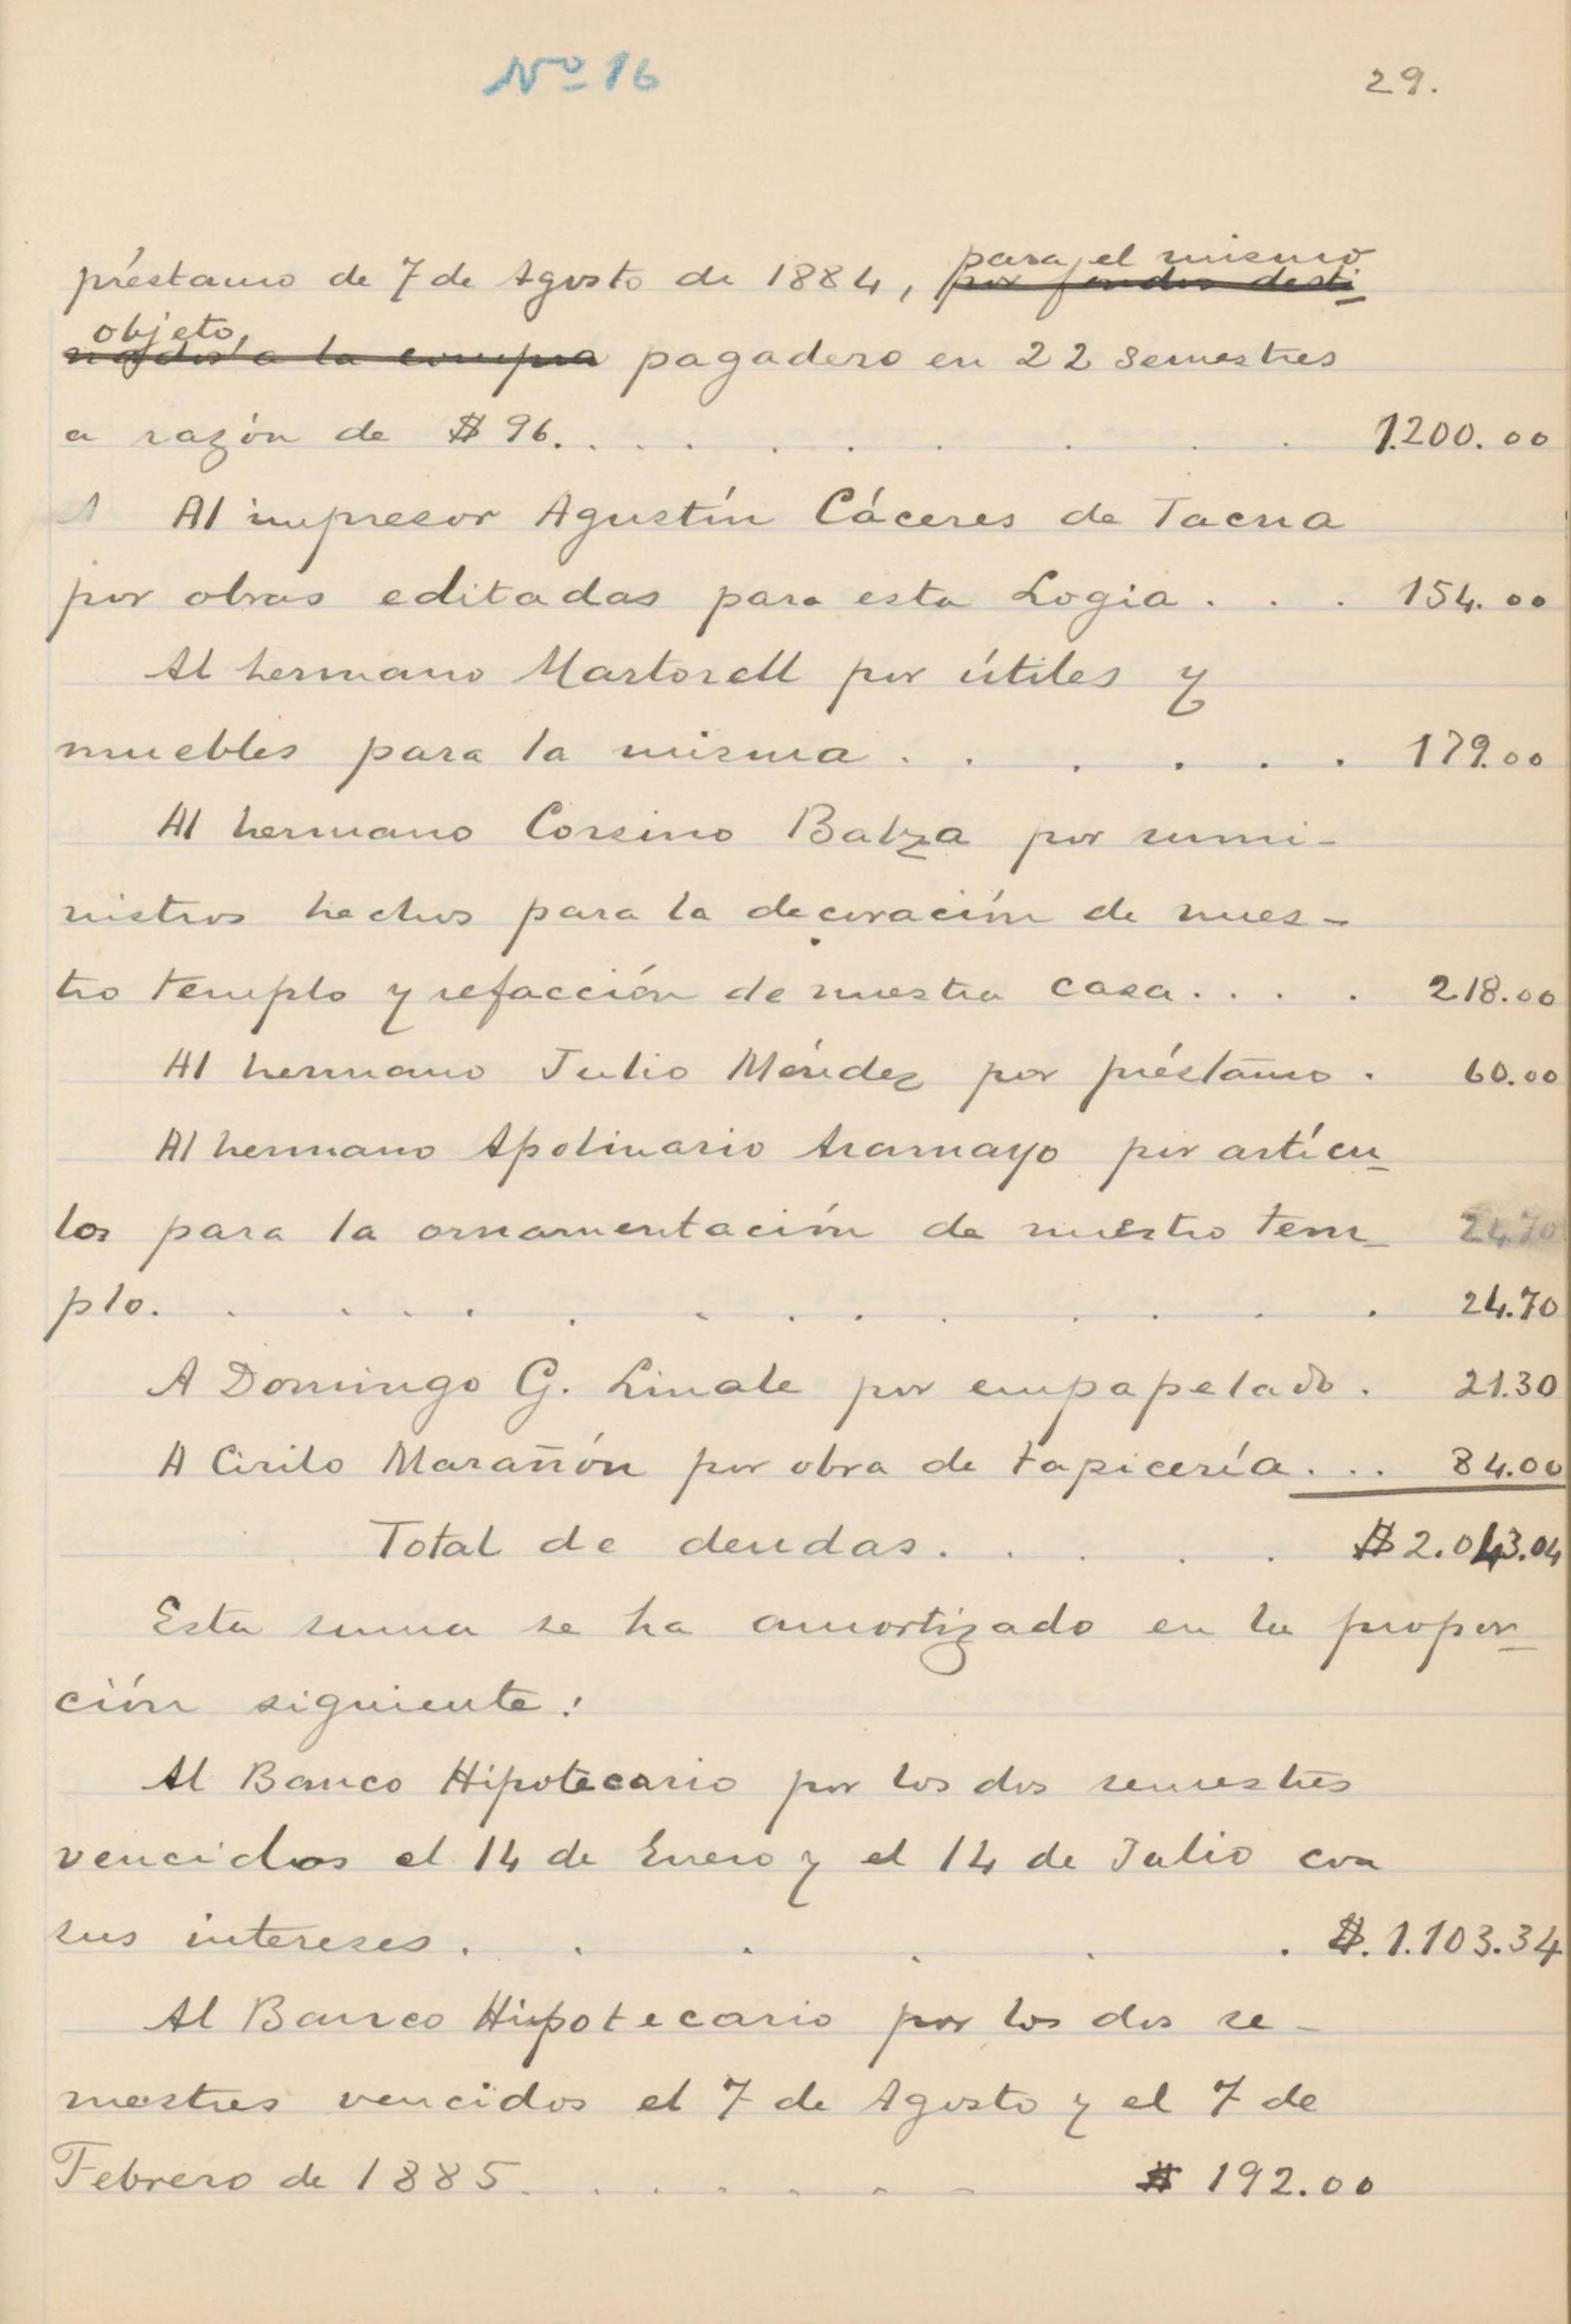 Nº 16
29.
préstamo de 7 de Agosto de 1884, para el mismo
por fondos desti
objeto,
nados a la compra pagadero en 22 semestres
a razón de $ 96. . . . . . . . . . 1.200.00
Al impresor Agustín Cáceres de Tacna
por obras editadas para esta Logia . . . 154.00
Al hermano Martorell por útiles y
muebles para la misma . . . . . . 179.00
Al hermano Corsino Balza por sumi-
nistros hechos para la decoración de nues-
tro templo y refacción de nuestra casa. . . . 218.00
Al hermano Julio Méndez por préstamo . 60.00
Al hermano Apolinario Aramayo por artícu-
los para la ornamentación de nuestro tem- 24.70
plo. . . . . . . . . . . . . 24.70
A Domingo G. Linale por empapelado . 21.30
A Cirilo Marañón por obra de tapicería . . . 84.00
Total de deudas . . . . . $ 2.043.04
Esta suma se ha amortizado en la propor-
ción siguiente:
Al Banco Hipotecario por los dos semestres
vencidos el 14 de Enero y el 14 de Julio con
sus intereses . . . . . . $. 1.103.34
Al Banco Hipotecario por los dos se-
mestres vencidos el 7 de Agosto y el 7 de
Febrero de 1885 . . . . . . . $ 192.00